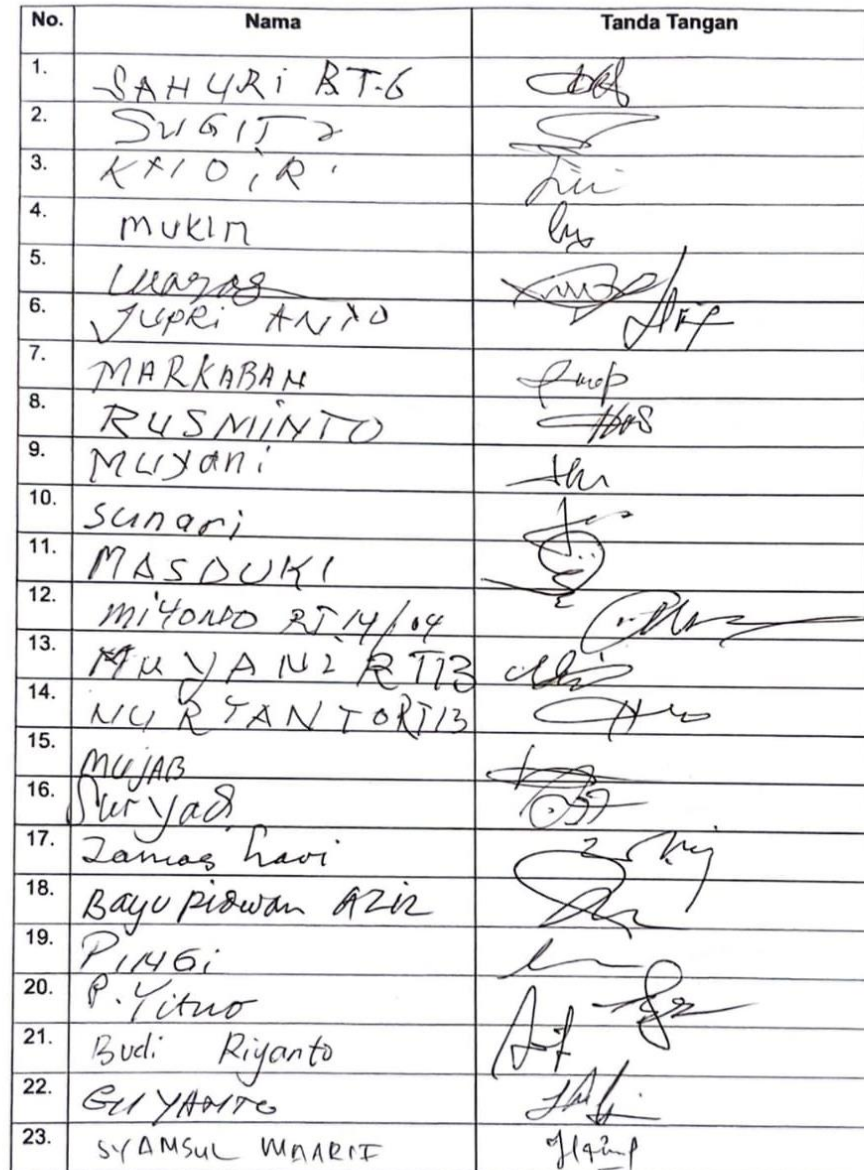 No. Nama Tanda Tangan
1. SAHURi RT.6
2. SUGITO
3. KHOiRi
4. MUKIM
5. Waras
6. JUPRi ANTO
7. MARKABAN
8. RUSMINTO
9. Muyani
10. Sunari
11. MASDUKI
12. MiYONDO RT 14/04
13. MUYANI RT13
14. NURYANTO RT13
15. MUJAB
16. Suryadi
17.
18. Bayu Ridwan Aziz
19. PINGi
20. P. Yitno
21. Budi Riyanto
22. GUYANTO
23. SYAMSUL MAARIF